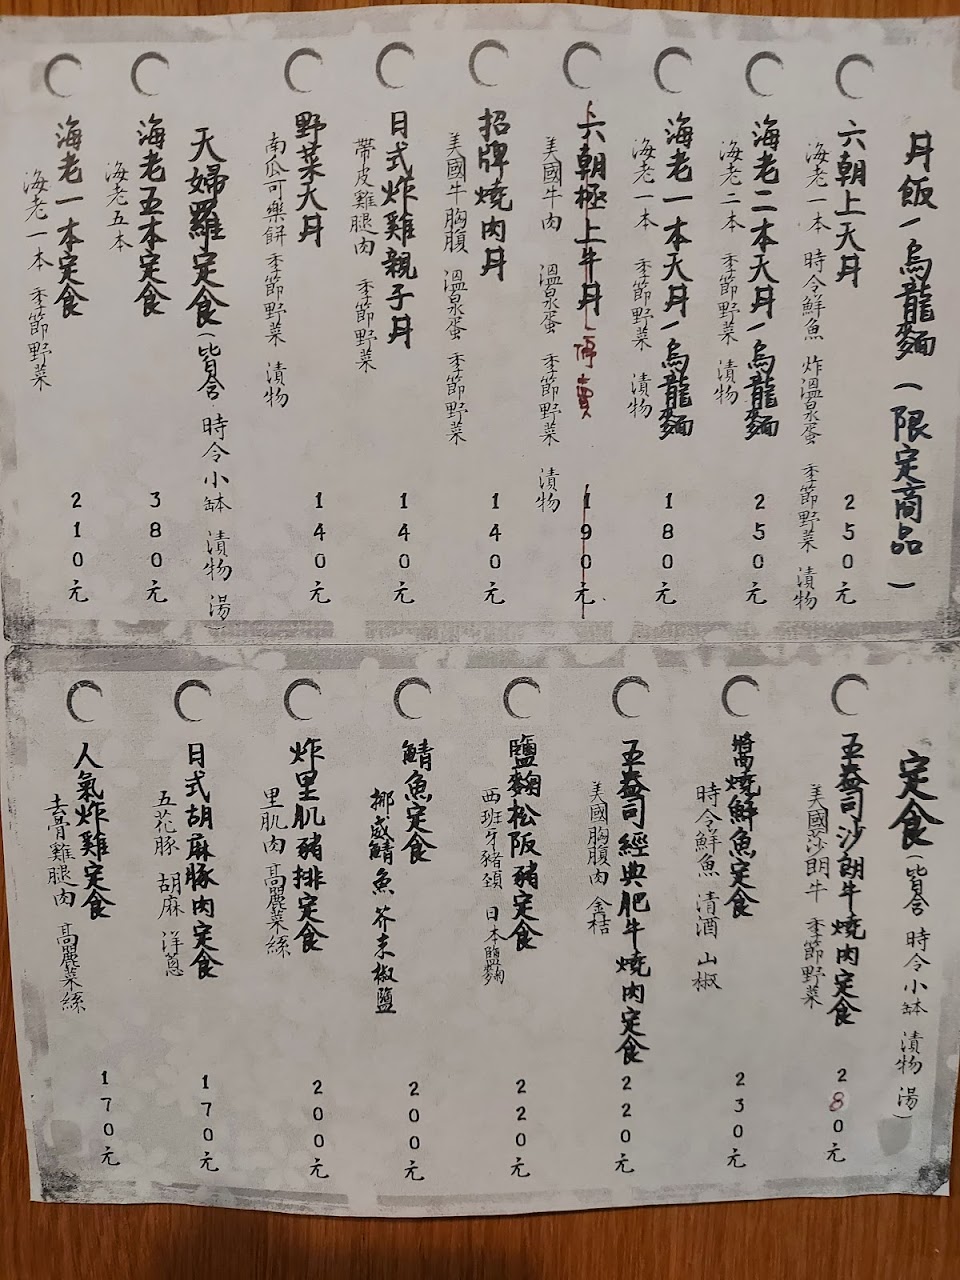 丼飯/烏龍麵(限定商品)
六朝上天丼 250元
海老一本 時令鮮魚 炸溫泉蛋 季節野菜 漬物
海老二本天丼/烏龍麵 250元
海老二本 季節野菜 漬物
海老一本天丼/烏龍麵 180元
海老一本 季節野菜 漬物
六朝極上牛丼 停賣 190元
美國牛肉 溫泉蛋 季節野菜 漬物
招牌燒肉丼 140元
美國牛胸腹 溫泉蛋 季節野菜
日式炸雞親子丼 140元
帶皮雞腿肉 季節野菜
野菜天丼 140元
南瓜可樂餅 季節野菜 漬物
天婦羅定食(皆含 時令小缽 漬物 湯)
海老五本定食 380元
海老五本
海老一本定食 210元
海老一本 季節野菜
定食(皆含 時令小缽 漬物 湯)
玉醬司沙朗牛燒肉定食 280元
美國莎朗牛 季節野菜
醬燒鮮魚定食 230元
時令鮮魚 清酒 山椒
經典肥牛燒肉定食 220元
美國胸腹肉 金桔
鹽麴松阪豬定食 220元
西班牙豬頸 日本鹽麴
鯖魚定食 200元
挪威鯖魚 芥末椒鹽
炸里肌豬排定食 200元
里肌肉 高麗菜絲
日式胡麻豚肉定食 170元
五花豚 胡麻 洋蔥
人氣炸雞定食 170元
去骨雞腿肉 高麗菜絲